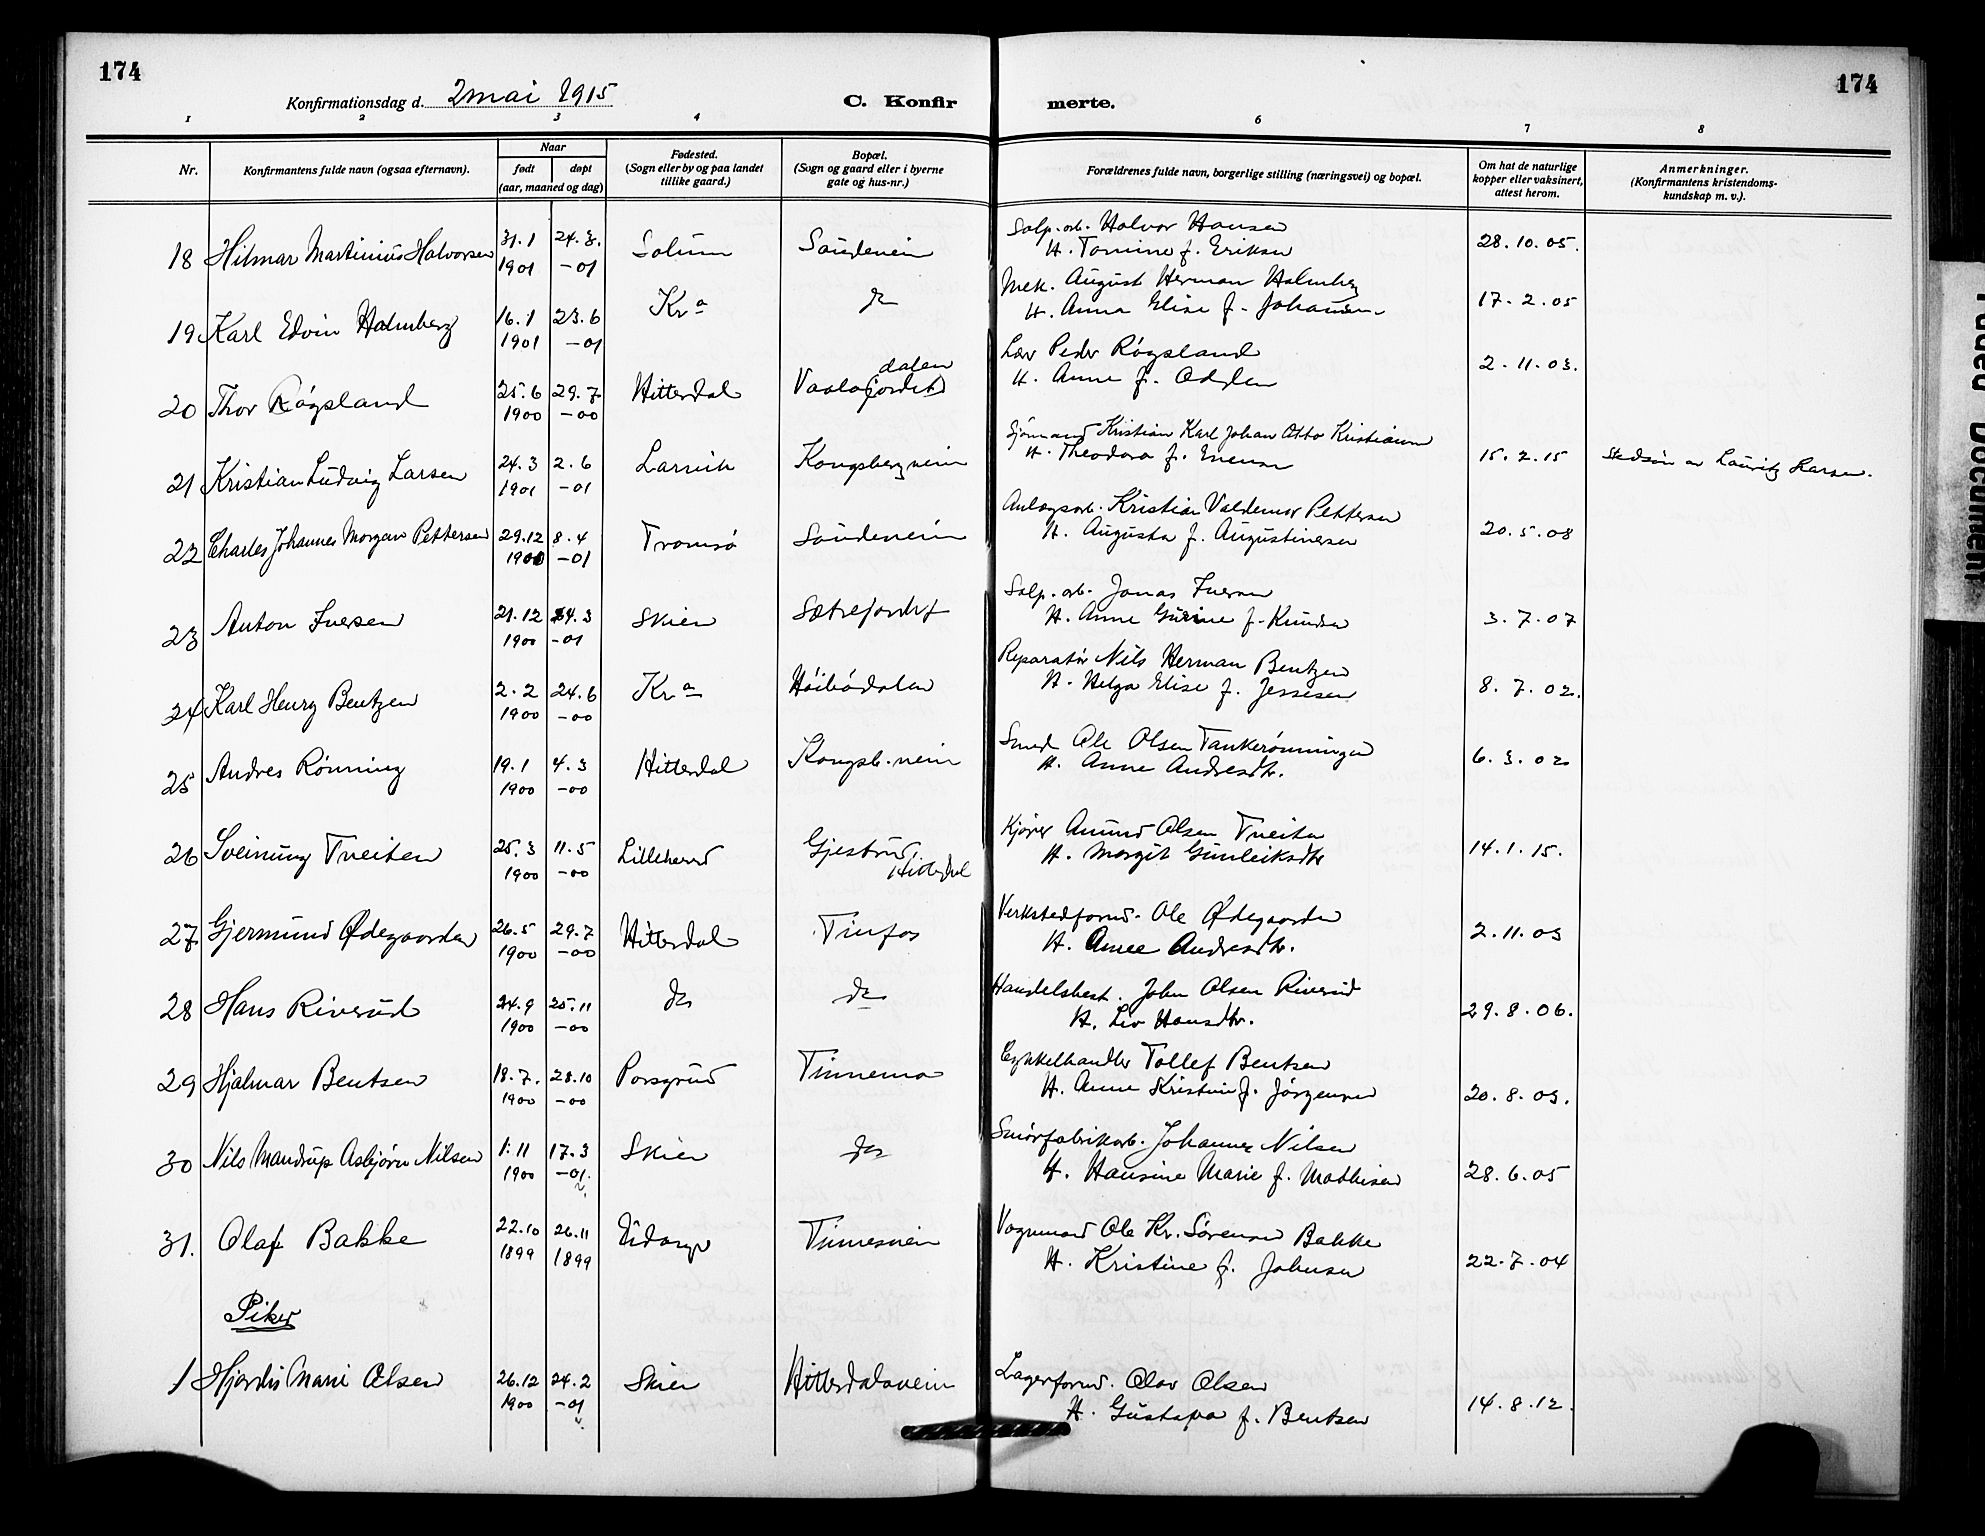 174
Konfirmationsdag d. 2 mai 1915
C. Konfirmerte.
174
1 2 3 4 5 6 7 8
Nr.
Konfirmantens fulde navn (ogsaa efternavn).
Naar
født døpt
(aar, maaned og dag)
Fødested.
(Sogn eller by og paa landet
tillike gaard.)
Bopæl.
(Sogn og gaard eller i byerne
gate og hus-nr.)
Forældrenes fulde navn, borgerlige stilling (næringsvei) og bopæl.
Om hat de naturlige
kopper eller vaksinert,
attest herom.
Anmerkninger.
(Konfirmantens kristendoms-
kundskap m. v.).
18 Hilmar Martinius Halvorsen 31.1 1901 24.3. -01 Solum Saudeveien Salp. arb. Halvor Hansen
H. Tomine f. Eriksen 28.10.05.
19 Karl Edvin Halmberg 16.1 1901 23.6 -01 Kra do Mek. August Herman Halmberg
H. Anna Elise f. Johansen 17.2.05
20 Thor Røgsland 25.6 1900 29.7 -00 Hitterdal Vaalajordet dalen Lær Peder Røgsland
H. Anne f. 2.11.03.
21 Kristian Ludvig Larsen 24.3 1901 2.6 -01 Larvik Kongsbergveien Sjømand Kristian Karl Johan Otto Kristiansen
H. Theodora f. Evensen 15.2.15 Stedsøn av Lauritz Larsen.
22 Charles Johannes Morgan Pettersen 29.12 1900 8.4 -01 Tromsø Saudeveien Anlægsarb. Kristian Valdemar Pettersen
H. Augusta f. Augustinesen 20.5.08
23 Anton Iversen 21.12 1900 24.3 -01 Skien Sætrejordet Salp. arb. Jonas Iversen
H. Anne Gurine f. Knudsen 3.7.07
24 Karl Henry Bentzen 2.2 1900 24.6 -00 Kra Høibødalen Reparatør Nils Herman Bentzen
H. Helga Elise f. Jessesen 8.7.02.
25 Andres Rønning 19.1 1900 4.3 -00 Hitterdal Kongsb. veien Smed Ole Olsen Tankerønningen
H. Anne Andresdtr. 6.3.02
26 Sveinung Tveiten 25.3 1900 11.5 -00 Lilleherred Gjestrud, Hitterdal Kjører Amund Olsen Tveiten
H. Margit Gunleiksdtr 14.1.15.
27 Gjermund Ødegaarden 26.5 1900 29.7 -00 Hitterdal Tinfos Verkstedform. Ole Ødegaarden
H. Anne Andresdtr. 2.11.03
28 Hans Riverud 24.9 1900 25.11 -00 do do Handelsbest. John Olsen Riverud
H. Liv Hansdtr. 29.8.06.
29 Hjalmar Bentsen 18.7. 1900 28.10 -00 Porsgrund Tinnemoen Cykkelhandler Tollef Bentsen
H. Anne Kristine f. Jørgensen 20.8.03.
30 Nils Mandrup Asbjørn Nilsen 1.11 1900 17.3 -01. Skien do Smørfabrikarb. Johannes Nilsen
H. Hansine Marie f. Mathisen 28.6.05
31. Olaf Bakke 22.10 1899 26.11 1899 Eidanger Tinnesveien Vognmand Ole Kr. Sørensen Bakke
H. Kristine f. Johnsen 22.7.04
Piker
1 Hjørdis Marie Olsen 26.12 1900 24.2 -01 Skien Hitterdalsveien Lagerformd. Olav Olsen
H. Gustava f. Bentsen 14.8.12.
Faded Document